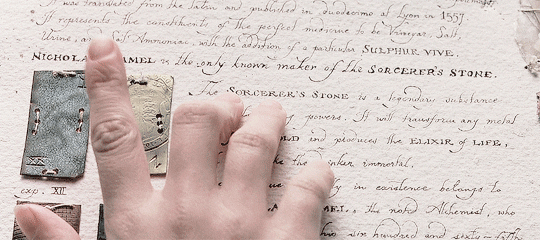 It was translated from the latin and published in duodecimo at Lyon in 1557.
It represents the constituents of the perfect medicine to be Vinegar, Salt,
Urine, and Salt Ammoniac, with the addition of a particular SULPHUR VIVE.
NICHOLA AMEL is the only known maker of the SORCERER'S STONE.
The SORCERER'S STONE is a legendary substance
powers. It will transform any metal
OLD and produces the ELIXIR of LIFE,
ke the inker immortal.
y in existence belongs to
MEL, the noted Alchemist, who
his six hundred and sixty-fifth
XX
exp. XII